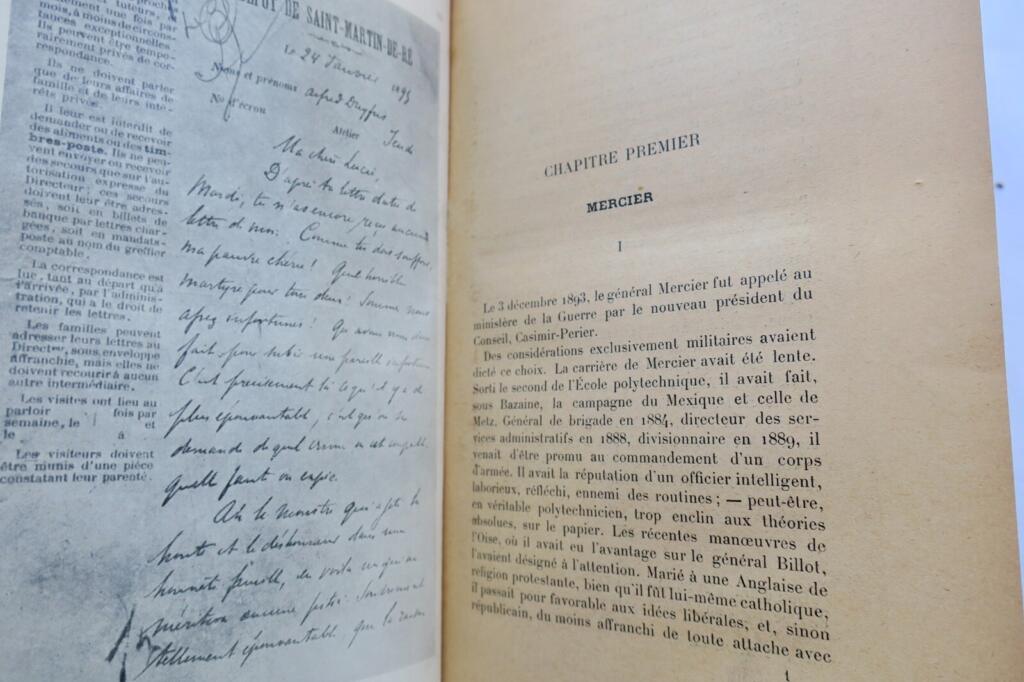 mois, à moins de circons-
tances exceptionnelles.
Ils peuvent être tempo-
rairement privés de cor-
respondance.
Ils ne doivent parler
que de leurs affaires de
famille et de leurs inté-
rêts privés.
Il leur est interdit de
demander ou de recevoir
des aliments ou des tim-
bres-poste. Ils ne peu-
vent envoyer ou recevoir
des secours que sur l'au-
torisation expresse du
Directeur; ces secours
doivent leur être adres-
sés, soit en billets de
banque par lettres char-
gées, soit en mandats-
poste au nom du greffier
comptable.
La correspondance est
lue, tant au départ qu'à
l'arrivée, par l'adminis-
tration, qui a le droit de
retenir les lettres.
Les familles peuvent
adresser leurs lettres au
Direct^eur, sous enveloppe
affranchie, mais elles ne
doivent recourir à aucun
autre intermédiaire.
Les visites ont lieu au
parloir fois par
semaine, le et
le à
Les visiteurs doivent
être munis d'une pièce
constatant leur parenté.
DE SAINT-MARTIN-DE-RÉ
Le 24 Janvier 1895
Noms et prénoms Alfred Dreyfus
No d'écrou
Atelier Jeudi
Ma chère Lucie,
D'après ta lettre datée de
Mardi, tu n'as encore reçu aucune
lettre de moi. Comme tu dois souffrir,
ma pauvre chérie! Quel horrible
martyre pour tous deux! Sommes nous
assez infortunés! Qu'avons nous donc
fait pour subir une pareille infortune
C'est précisément là ce qu'il y a de
plus épouvantable, c'est qu'on se
demande de quel crime on est coupable
quelle faute on expie.
Ah le monstre qui a jeté la
honte et le déshonneur dans une
honnête famille, en voilà un qui ne
méritera aucune pitié.
tellement épouvantable que la raison
CHAPITRE PREMIER
MERCIER
I
Le 3 décembre 1893, le général Mercier fut appelé au
ministère de la Guerre par le nouveau président du
Conseil, Casimir-Perier.
Des considérations exclusivement militaires avaient
dicté ce choix. La carrière de Mercier avait été lente.
Sorti le second de l'École polytechnique, il avait fait,
sous Bazaine, la campagne du Mexique et celle de
Metz. Général de brigade en 1884, directeur des ser-
vices administratifs en 1888, divisionnaire en 1889, il
venait d'être promu au commandement d'un corps
d'armée. Il avait la réputation d'un officier intelligent,
laborieux, réfléchi, ennemi des routines; — peut-être,
en véritable polytechnicien, trop enclin aux théories
absolues, sur le papier. Les récentes manœuvres de
l'Oise, où il avait eu l'avantage sur le général Billot,
l'avaient désigné à l'attention. Marié à une Anglaise de
religion protestante, bien qu'il fût lui-même catholique,
il passait pour favorable aux idées libérales, et, sinon
républicain, du moins affranchi de toute attache avec
1